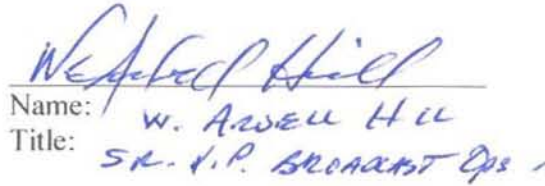 W. Ardell Hill
Name: W. ARDELL HILL
Title: SR. V.P. BROADCAST Ops.